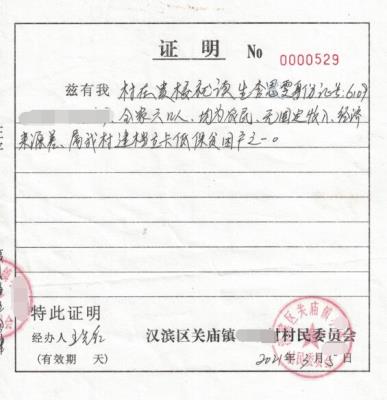 证 明 No 0000529
兹有我 村在贵校就读生李思雯身份证号:6109
，全家六口人，均为农民，无固定收入，经济
来源差、属我村建档立卡低保贫困户之一。
特此证明
经办人
(有效期 天)
汉滨区关庙镇 村民委员会
2021年 月5日
汉滨区关庙镇
村民委员会